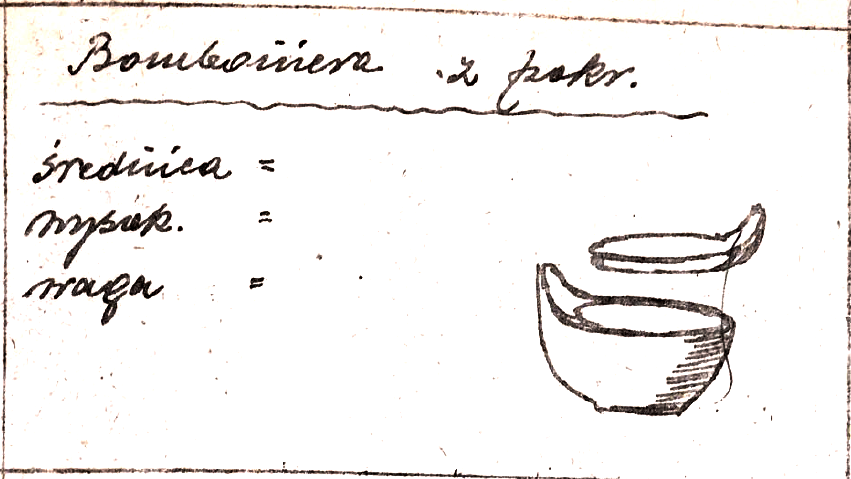 Bomboniera z pokr.
średnica =
wysok. =
waga =